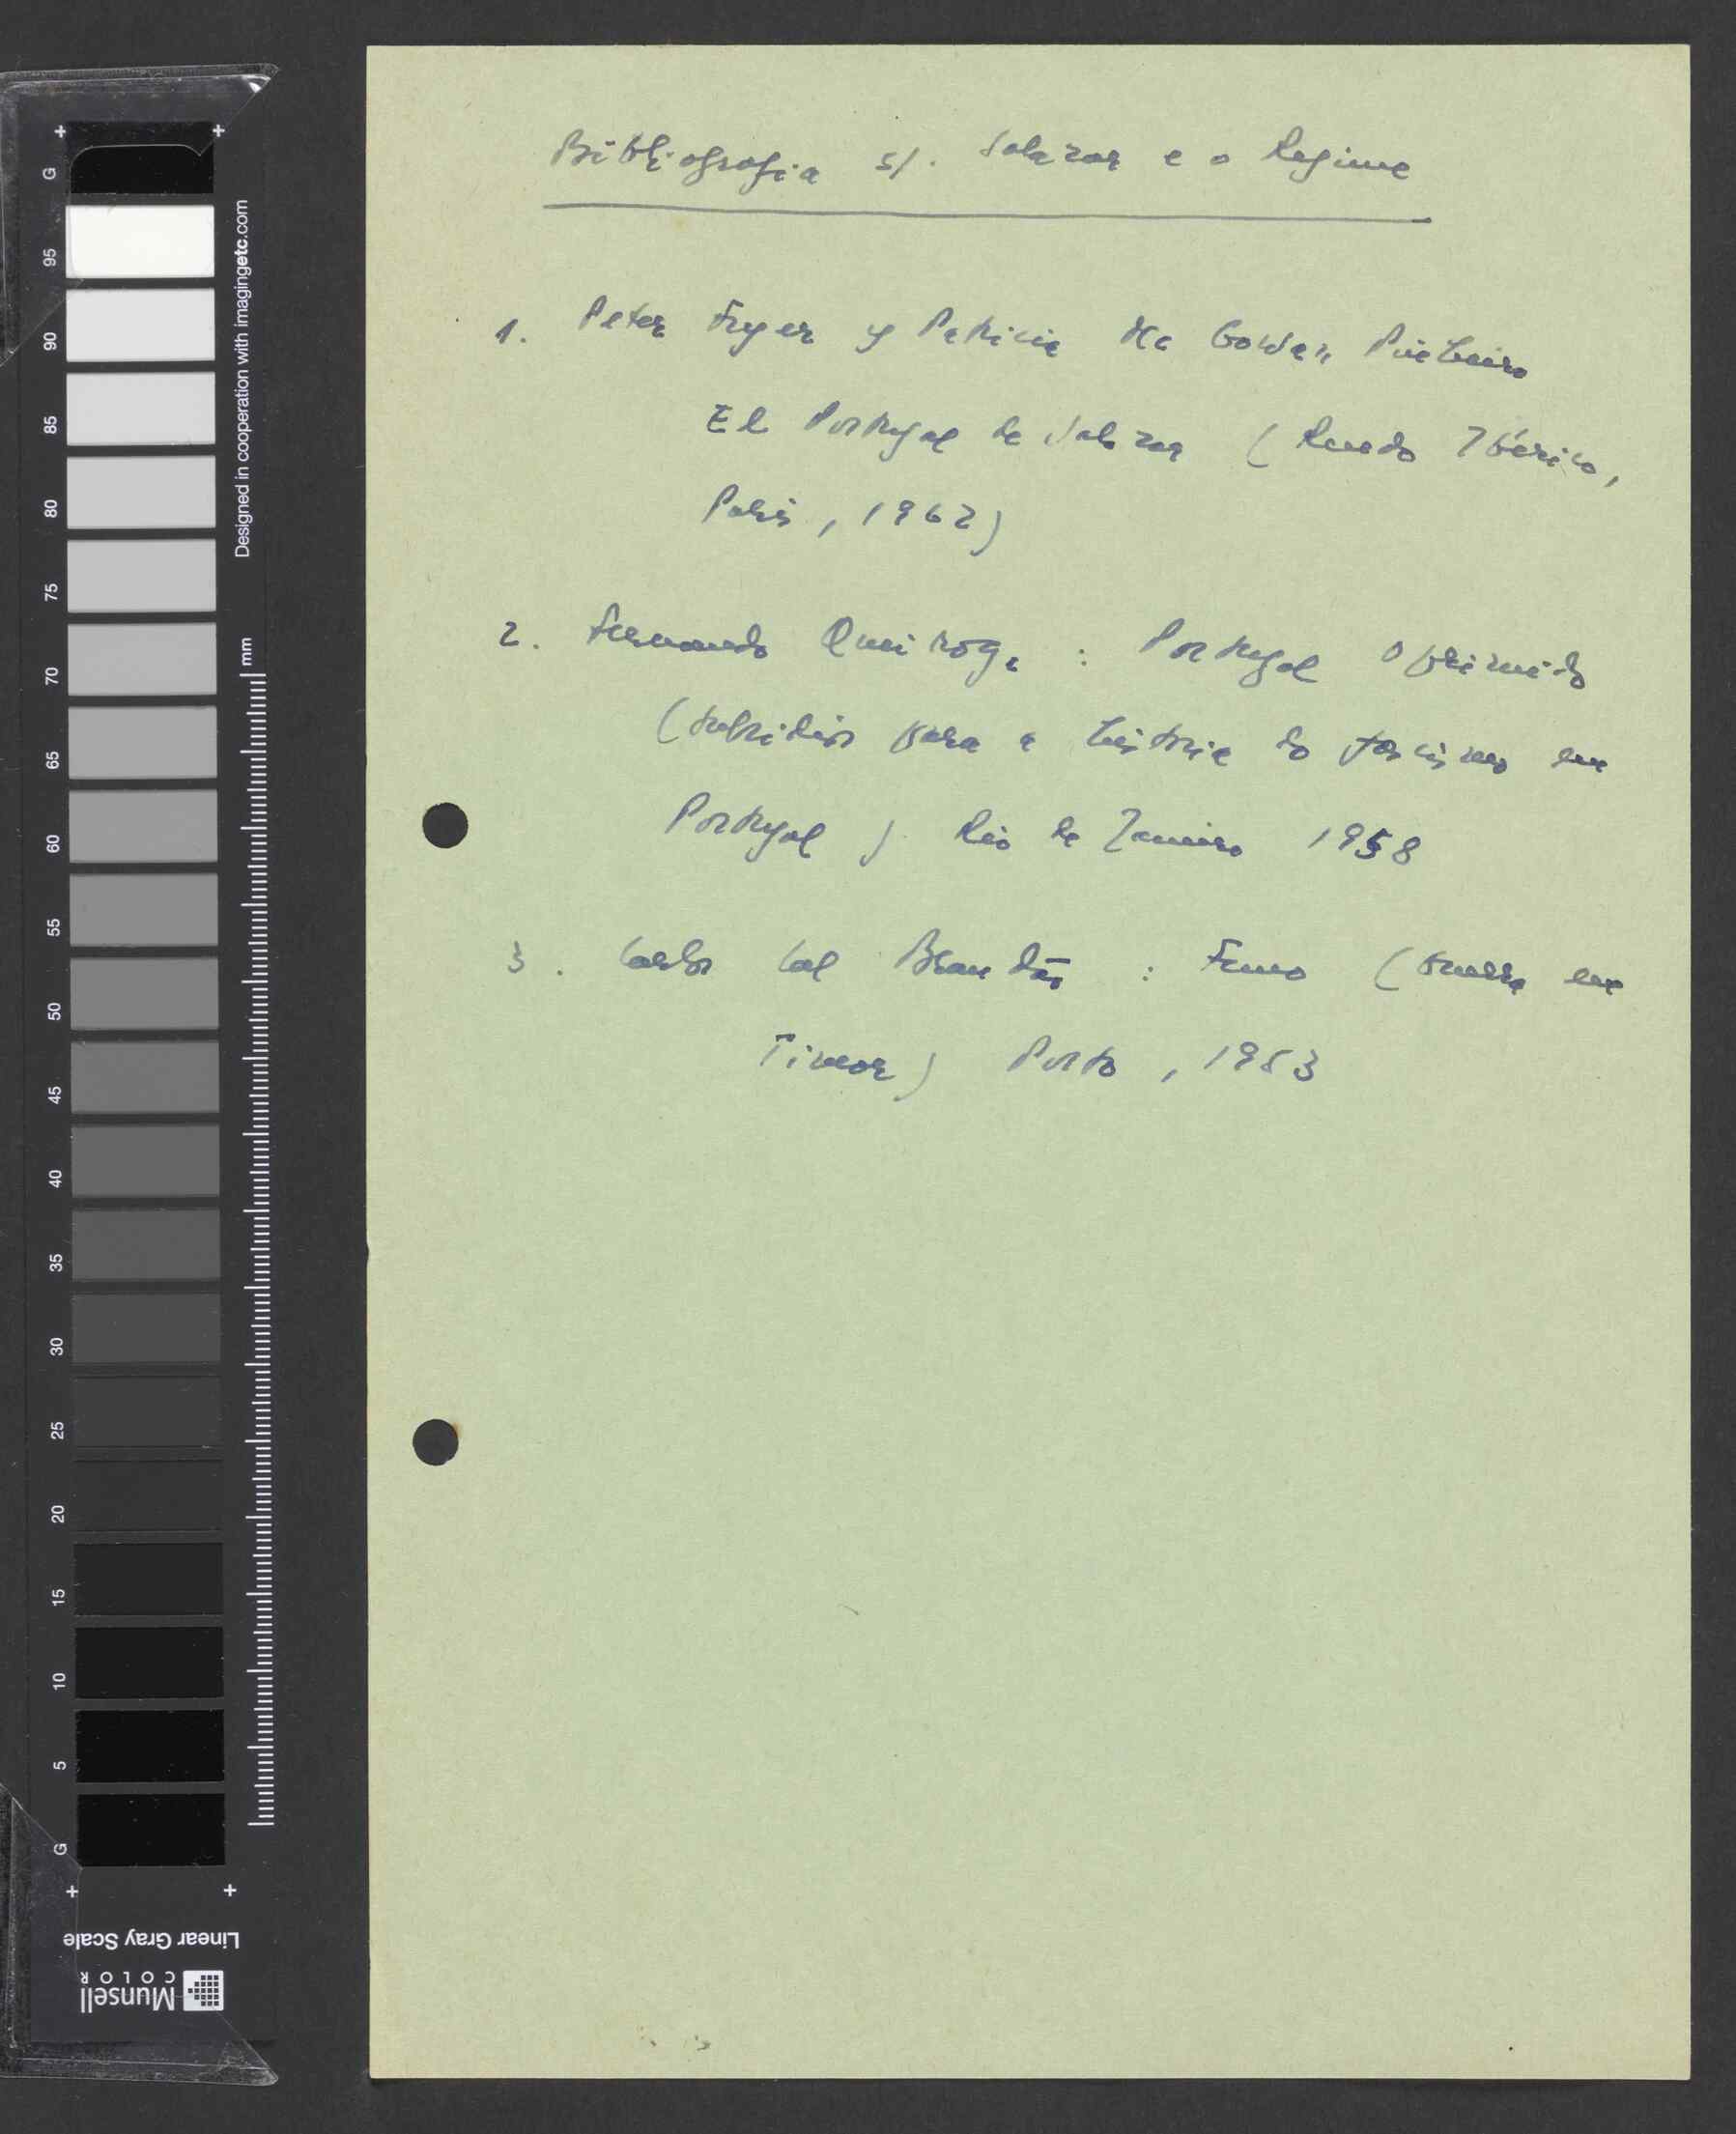 Bibliografia s/. Salazar e o Regime
1. Peter Fryer y Patricia Mc Gowan Pinheiro
El Portugal de Salazar (Ruedo Ibérico,
Paris, 1962)
2. Fernando Queiroga : Portugal Oprimido
(subsídios para a história do fascismo em
Portugal) Rio de Janeiro 1958
3. Carlos Cal Brandão : Funo (Guerra em
Timor) Porto, 1953
G
95
90
85
80
75
70
65
60
55
50
45
40
35
30
25
20
15
10
5
G
Designed in cooperation with imagingetc.com
mm
Linear Gray Scale
Munsell
COLOR